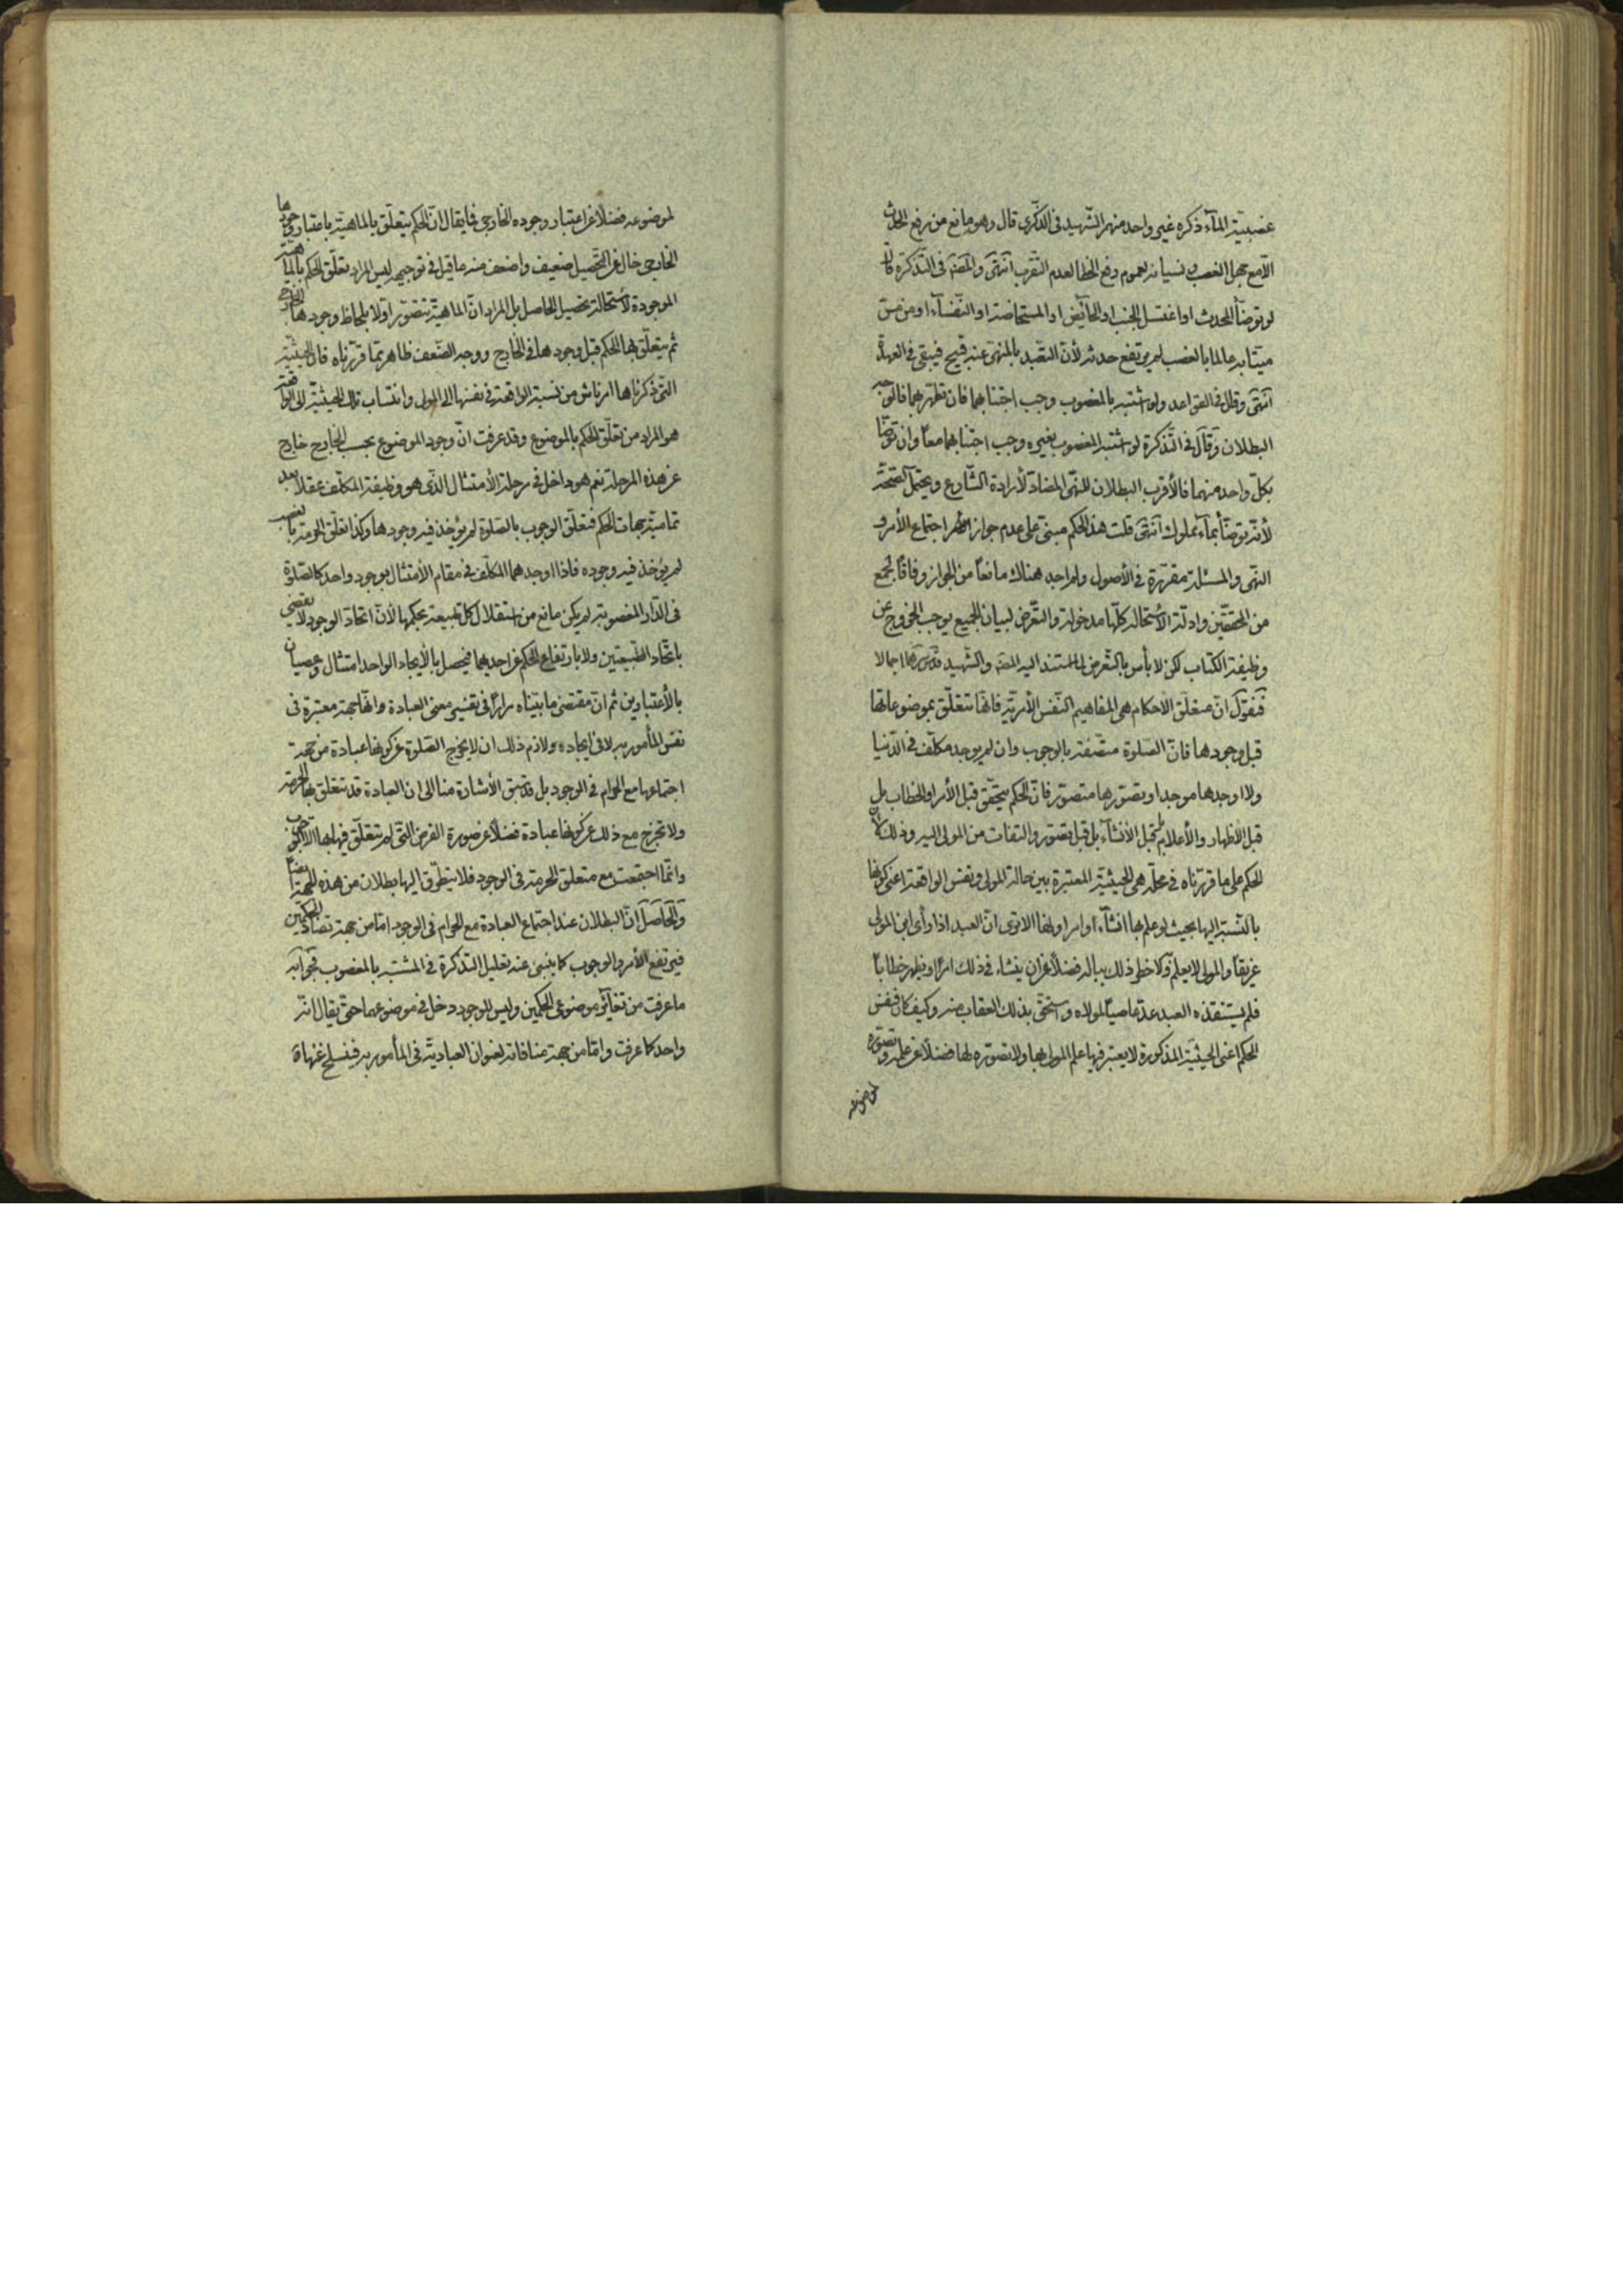 غصبيّة المآء ذكره غير واحد منهم الشّهيد فى الذّكرى قال وهو مانع من رفع الحدث
الّا مع جهل الغصب ونسيانه لعموم رفع الخطا لعدم التّقرب انتهى والمصنّف فى التّذكرة قال
لو توضّأ المحدث او اغتسل الجنب او الحآئض او المستحاضة او النّفسآء او من مسّ
ميتا به عالما بالغصب لم يرتفع حدثه لأنّ التّعبّد بالمنهىّ عنه قبيح فيبقى فى العهدة
انتهى وقال فى القواعد ولو اشتبه بالمغصوب وجب اجتنابهما فان تطهّر بهما فالوجه
البطلان وقال فى التّذكرة لو اشتبه المغصوب بغيره وجب اجتنابهما معا وان توضّا
بكلّ واحد منهما فالأقرب البطلان للنّهى المضادّ لأرادة الشّارع ويحتمل الصّحّة
لأنّه توضّأ بمآء مملوك انتهى قلت هذا الحكم مبنىّ على عدم جواز اجتماع الأمر و
النّهى والمسئلة مقرّرة فى الأصول ولم اجد هناك مانعا من الجواز وفاقا لجمع
من المحقّقين وادلّة الأستحالة كلّها مدخولة والتّعرّض لبيان الجميع يوجب الخروج عن
وظيفة الكتاب لكن لا بأس بالتّعرّض لما استند اليه المصنّف والشّهيد قدّس سرّهما اجمالا
فنقول انّ متعلّق الأحكام هى المفاهيم النّفس الأمريّة فانّها تتعلّق بموضوعاتها
قبل وجودها فانّ الصّلوة متّصفة بالوجوب وان لم يوجد مكلّف فى الدّنيا
ولا اوجدها موجد او تصوّرها متصوّر فانّ الحكم يتحقّق قبل الأمر او الخطاب بل
قبل الأظهار والأعلام بل قبل الأنشآء بل قبل تصوّر والتفات من المولى اليه وذلك لأنّ
الحكم على ما قرّرناه فى محلّه هى الحيثيّة المعتبرة بين حالة المولى ونفس الواقعة اعنى كونها
بالنّسبة اليها بحيث لو علم بها انشآء اوامر اولها الا ترى انّ العبد اذا رأى ابن المولى
غريقا والمولى لا يعلم ولا خطر ذلك بباله فضلا عن ان ينشاء فى ذلك امرا ويظهر خطابا
فلم يستنقذه العبد عدّ عاصيا لمولاه واستحقّ بذلك العقاب منه وكيف كان فنفس
الحكم اعنى الحيثيّة المذكورة لا يعتبر فيها علم المولى بها ولا تصوّره لها فضلا عن علمه وتصوّره
لموضوعه
لموضوعه فضلا عن اعتبار وجوده الخارجى فما يقال انّ الحكم يتعلّق بالماهيّة باعتبار وجودها
الخارجى خال عن التّحصيل ضعيف واضعف منه ما قيل فى توجيهه ليس المراد تعلّق الحكم بالماهيّة
الموجودة لأستحالة تحصيل الحاصل بل المراد انّ الماهيّة تتصوّر اوّلا بلحاظ وجودها الخارجى
ثم يتعلّق بها الحكم قبل وجودها فى الخارج ووجه الضّعف ظاهر ممّا قرّرناه فانّ الحيثيّة
التى ذكرناها امر ناش من نسبة الواقعة فى نفسها الى المولى وانتساب تلك الحيثيّة الى الواقعة
هو المراد من تعلّق الحكم بالموضوع وقد عرفت انّ وجود الموضوع بحسب الخارج خارج
عن هذه المرحلة نعم هو داخل فى مرحلة الأمتثال الّذى هو وظيفة المكلّف عقلا بعد
تماميّة جهات الحكم فتعلّق الوجوب بالصّلوة لم يؤخذ فيه وجودها وكذا تعلّق الحرمة بالغصب
لم يؤخذ فيه وجوده فاذا اوجدهما المكلّف فى مقام الأمتثال بوجود واحد كالصّلوة
فى الدّار المغصوبة لم يكن مانع من استقلال كلّ طبيعة بحكمها لأنّ اتّحاد الوجود لا يقضى
باتّحاد الطّبيعتين ولا بارتفاع الحكم عن احديهما فيحصل بالأيجاد الواحد امتثال وعصيان
بالأعتبارين ثم انّ مقتضى ما بيّناه مرارا فى تفسير معنى العبادة وانّها جهة معتبرة فى
نفس المأمور به لا فى ايجاده ولازم ذلك ان لا يخرج الصّلوة عن كونها عبادة من جهة
اجتماعها مع الحرام فى الوجود بل قد سبق الأشارة منا الى ان العبادة قد تتعلق بها الحرمة
ولا تخرج مع ذلك عن كونها عبادة فضلا عن صورة الفرض الّتى لم تتعلّق فيها بها الّا الوجوب
وانّما اجتمعت مع متعلق الحرمة فى الوجود فلا يتطرّق اليها بطلان من هذه الجهة ايضا
والحاصل انّ البطلان عند اجتماع العبادة مع الحرام فى الوجود امّا من جهة تضادّ الحكمين
فيرتفع الأمر والوجوب كما ينبئ عنه تعليل التذكرة فى المشتبه بالمغصوب فجوابه
ما عرفت من تغاير موضوعى الحكمين وليس للوجود دخل فى موضوعهما حتّى يقال انّه
واحد كما عرفت وامّا من جهة منافاته لعنوان العباديّة فى المأمور به فينسلخ عنها